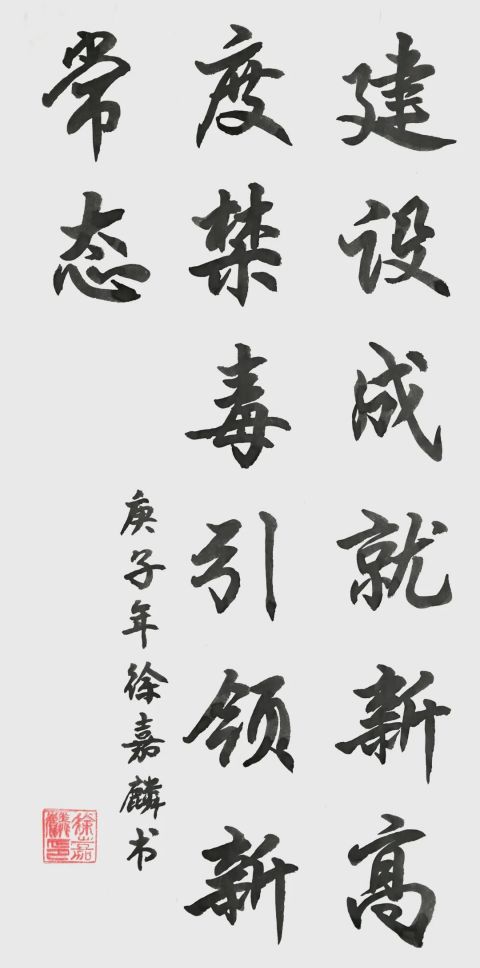 建设成就新高
度禁毒引领新
常态
庚子年徐嘉麟书
徐嘉麟印